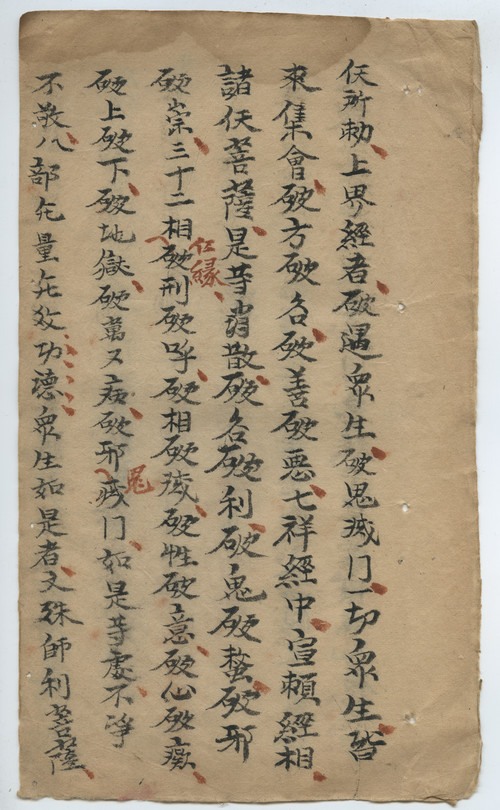 仸所勅上界經者破遇衆生破鬼滅门一切衆生皆
来集會破方破名破善破悪七祥經中宣頼經相
諸仸菩薩是等消散破各破利破鬼破蝥破邪
破崇三十二相破刑破呼破相破滅破性破意破心破
仁縁
破上破下破地獄破萬又病破邪滅门如是等處不净
鬼
不敬八部無量無父功德衆生如是者文殊師利菩薩